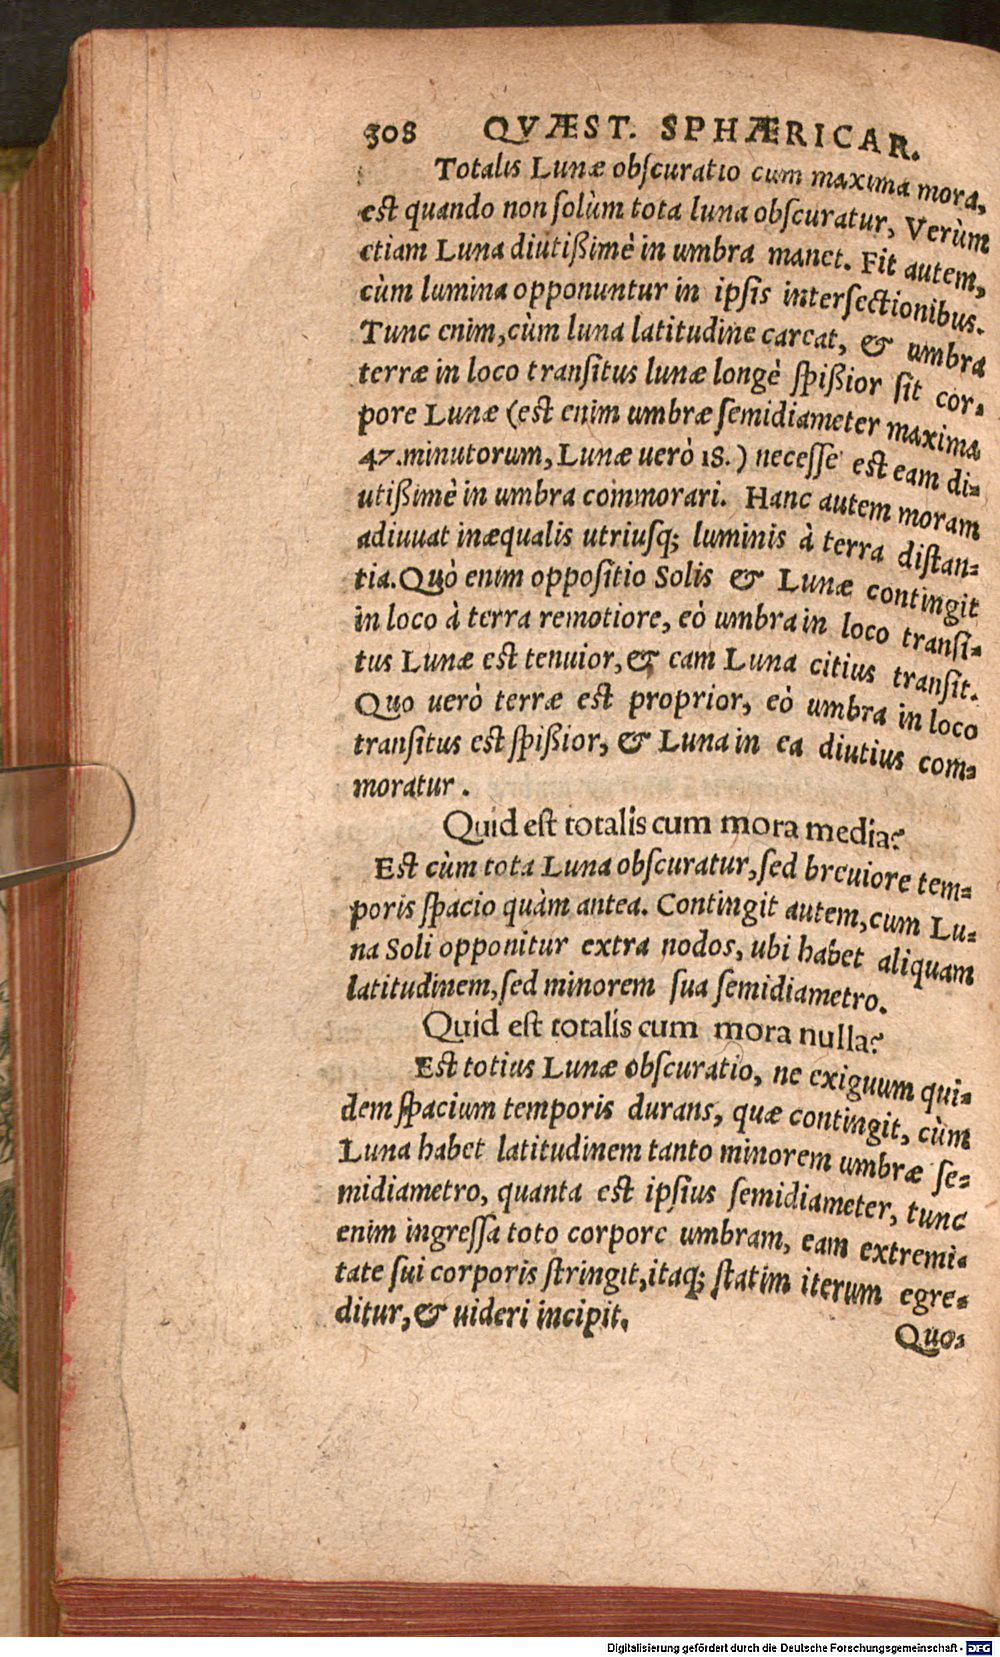 308 QVÆST. SPHÆRICAR.
Totalis Lunæ obſcuratio cum maxima mora,
est quando non ſolùm tota luna obſcuratur, Verùm
etiam Luna diutißimè in umbra manet. Fit autem,
cùm lumina opponuntur in ipſis interſectionibus.
Tunc enim, cùm luna latitudine careat, & umbra
terræ in loco tranſitus lunæ longè ſpißior ſit cor-
pore Lunæ (est enim umbræ ſemidiameter maxima
47. minutorum, Lunæ uerò 18.) neceſſe est eam di-
utißimè in umbra commorari. Hanc autem moram
adiuuat inæqualis utriuſq; luminis à terra distan-
tia. Quò enim oppoſitio Solis & Lunæ contingit
in loco à terra remotiore, eò umbra in loco tranſi-
tus Lunæ est tenuior, & eam Luna citius tranſit.
Quo uerò terræ est proprior, eò umbra in loco
tranſitus est ſpißior, & Luna in ea diutius com-
moratur.
Quid est totalis cum mora media?
Est cùm tota Luna obſcuratur, ſed breuiore tem-
poris ſpacio quàm antea. Contingit autem, cum Lu-
na Soli opponitur extra nodos, ubi habet aliquam
latitudinem, ſed minorem ſua ſemidiametro.
Quid est totalis cum mora nulla?
Est totius Lunæ obſcuratio, ne exiguum qui-
dem ſpacium temporis durans, quæ contingit, cùm
Luna habet latitudinem tanto minorem umbræ ſe-
midiametro, quanta est ipſius ſemidiameter, tunc
enim ingreſſa toto corpore umbram, eam extremi-
tate ſui corporis stringit, itaq; statim iterum egre-
ditur, & uideri incipit.
Quo-
Digitalisierung gefördert durch die Deutsche Forschungsgemeinschaft - DFG